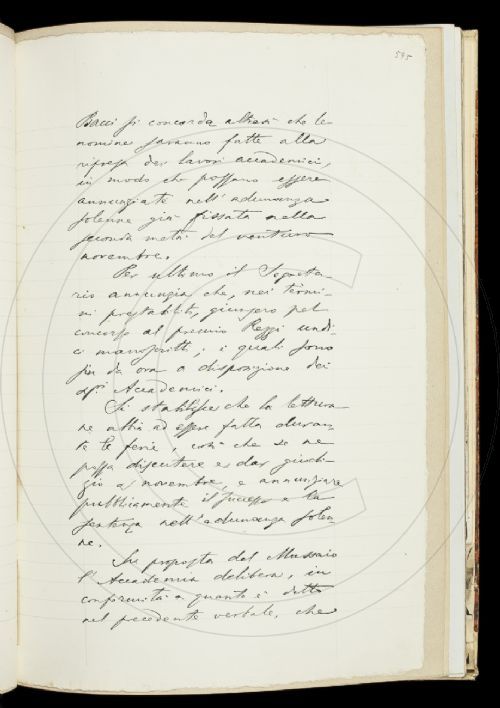 595
Bacci si concorda altresì che le
nomine saranno fatte alla
ripresa dei lavori accademici,
in modo che possano essere
annunziate nell'adunanza
solenne già fissata nella
seconda metà del venturo
novembre.
Per ultimo il Segreta-
rio annunzia che, nei termi-
ni prestabiliti, giunsero pel
concorso al premio Rezzi undi-
ci manoscritti; i quali sono
fin da ora a disposizione dei
Accademici.
Si stabilisce che la lettura
ne abbia ad essere fatta duran-
te le ferie, così che se ne
possa discutere e dar giudi-
zio a novembre, e annunziare
pubblicamente il successo e la
sentenza nell'adunanza solen
ne.
Su proposta del Mussaio
l'Accademia delibera, in
conformità a quanto è detto
nel precedente verbale, che